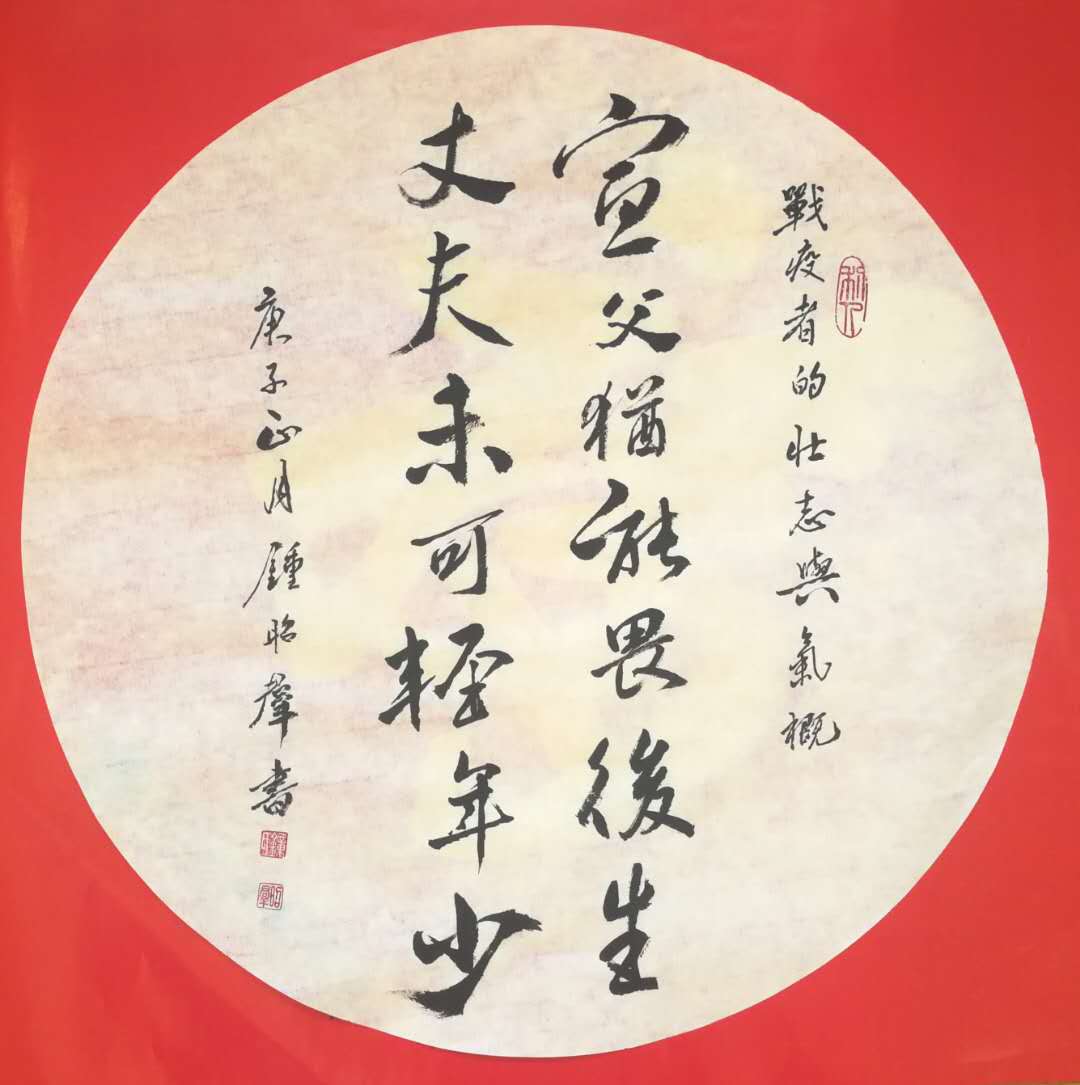 戰疫者的壯志與氣概
宣父猶能畏後生
丈夫未可輕年少
庚子正月鍾昭羣書